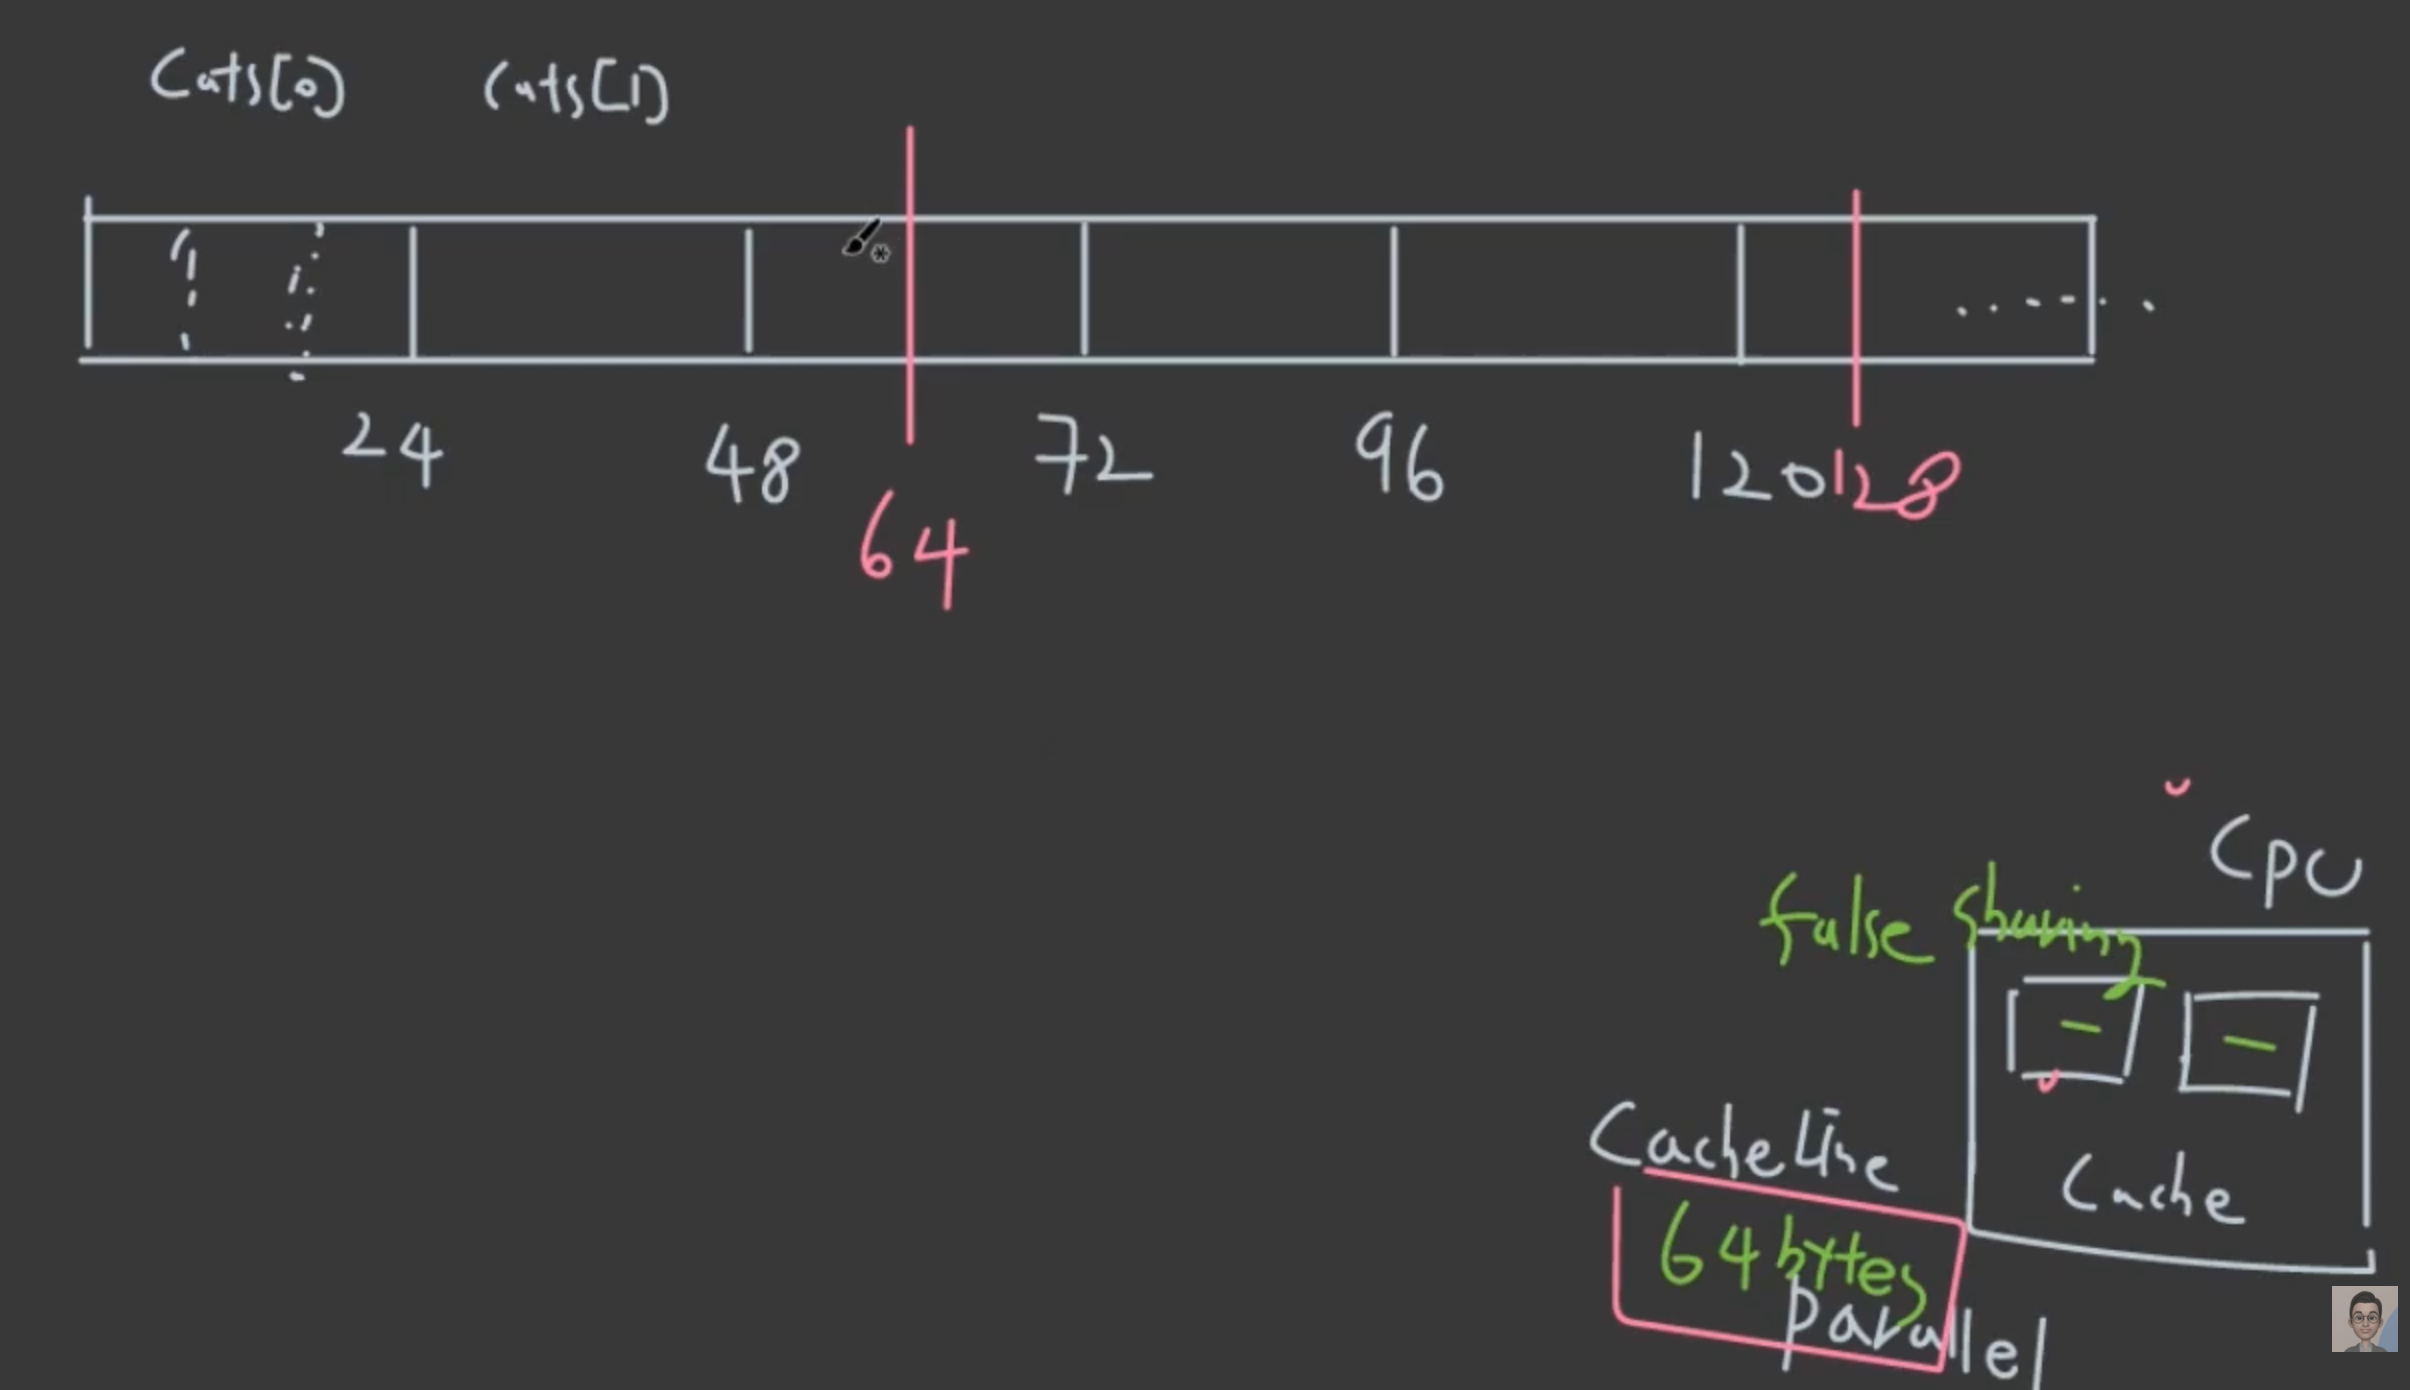 Cats[0] Cats[1]
24 48 72 96 120 128
64
CPU
false sharing
CacheLine
Cache
64 bytes
parallel